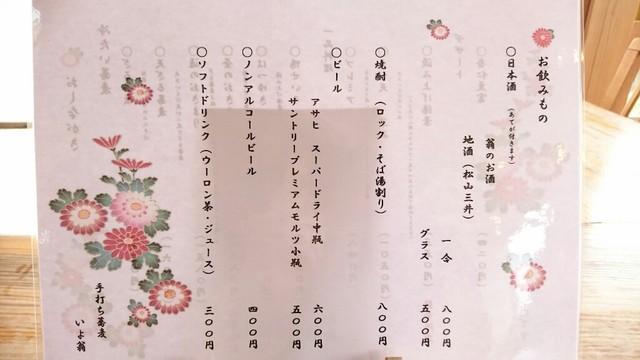 お飲みもの
〇日本酒（あてが付きます）
翁のお酒 一合 八〇〇円
地酒（松山三井） グラス 五〇〇円
〇焼酎（ロック・そば湯割り） 八〇〇円
〇ビール
アサヒ スーパードライ中瓶 六〇〇円
サントリープレミアムモルツ小瓶 五〇〇円
〇ノンアルコールビール 四〇〇円
〇ソフトドリンク（ウーロン茶・ジュース） 三〇〇円
手打ち蕎麦
いよ翁